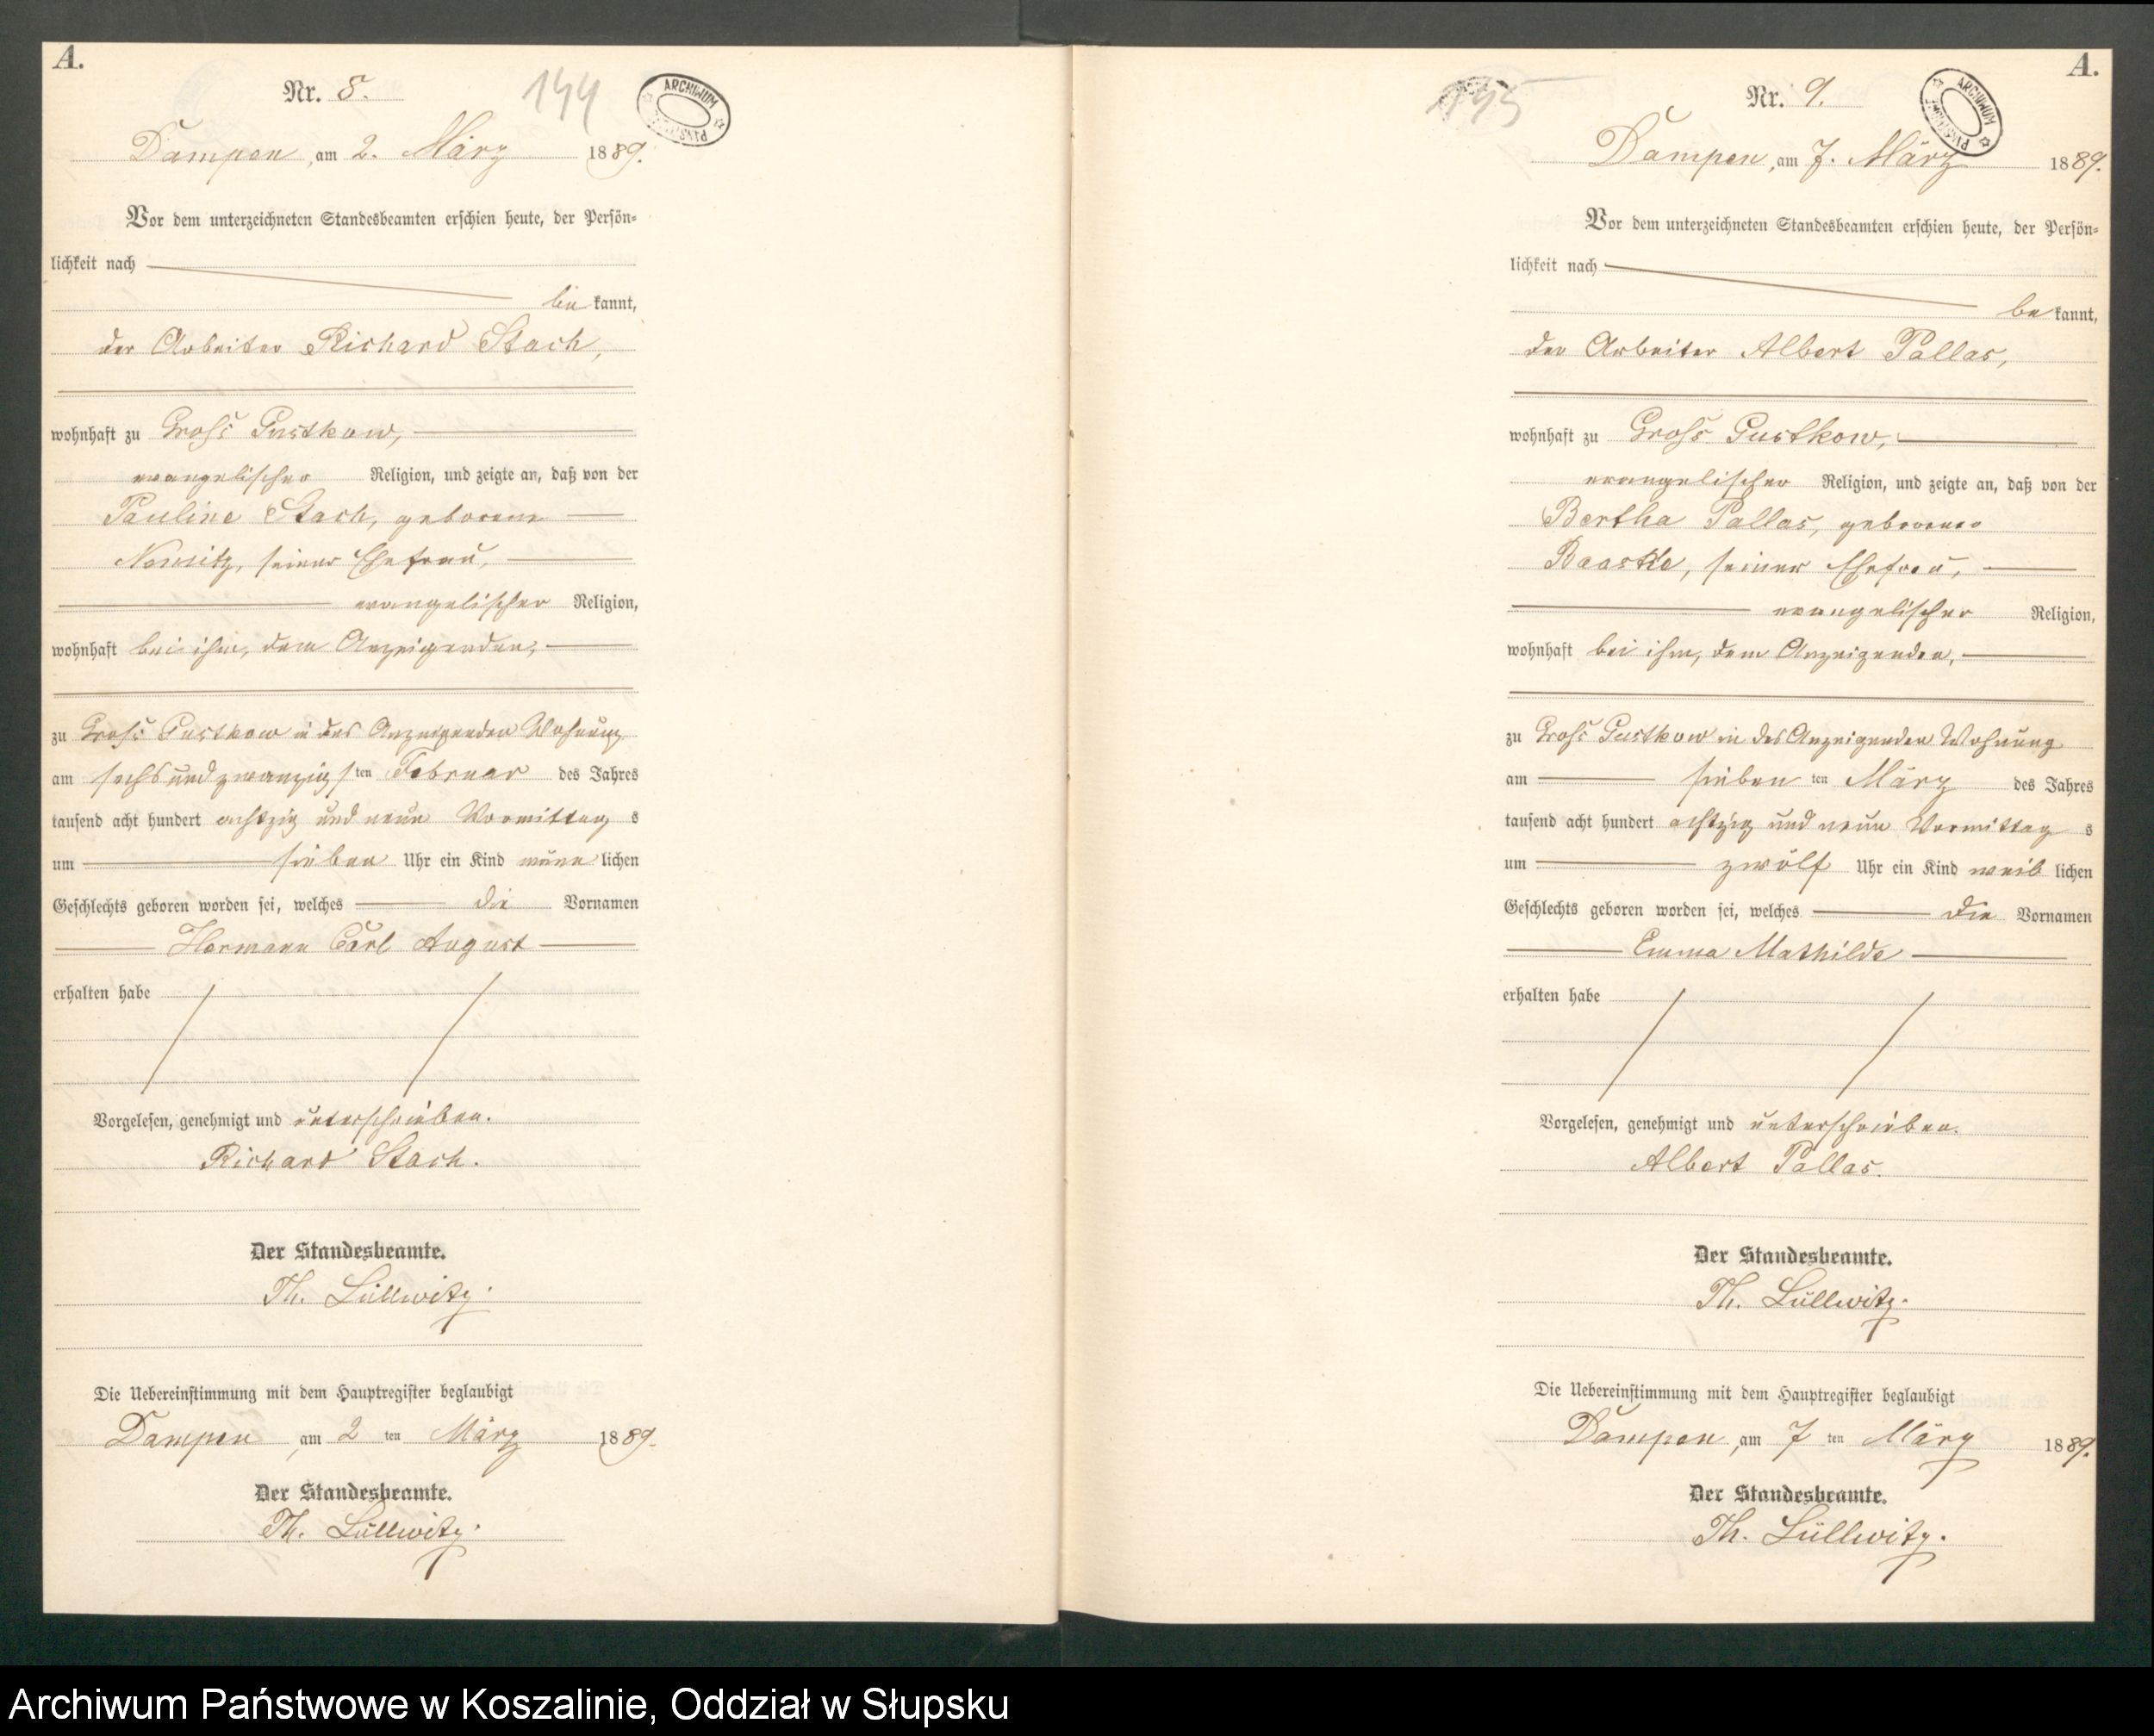 A.
Nr. 8.
144
ARCHIWUM
Dampen, am 2. März 1889.
Vor dem unterzeichneten Standesbeamten erschien heute, der Persön=
lichkeit nach
be kannt,
der Arbeiter Richard Stach,
wohnhaft zu Gross Gustkow,
evangelischer Religion, und zeigte an, daß von der
Pauline Stach, geborene
Nemitz, seiner Ehefrau,
evangelischer Religion,
wohnhaft bei ihm, dem Anzeigenden,
zu Gross Gustkow in des Anzeigenden Wohnung
am sechs und zwanzigsten Februar des Jahres
tausend acht hundert achtzig und neun Vormittag s
um sieben Uhr ein Kind männ lichen
Geschlechts geboren worden sei, welches die Vornamen
Hermann Carl August
erhalten habe
Vorgelesen, genehmigt und unterschrieben.
Richard Stach.
Der Standesbeamte.
Th. Lüllwitz.
Die Uebereinstimmung mit dem Hauptregister beglaubigt
Dampen, am 2 ten März 1889.
Der Standesbeamte.
Th. Lüllwitz.
A.
Nr. 9.
145
ARCHIWUM
Dampen, am 7. März 1889.
Vor dem unterzeichneten Standesbeamten erschien heute, der Persön=
lichkeit nach
be kannt,
der Arbeiter Albert Pallas,
wohnhaft zu Gross Gustkow,
evangelischer Religion, und zeigte an, daß von der
Bertha Pallas, geborener
Baaske, seiner Ehefrau,
evangelischer Religion,
wohnhaft bei ihm, dem Anzeigenden,
zu Gross Gustkow in des Anzeigenden Wohnung
am sieben ten März des Jahres
tausend acht hundert achtzig und neun Vormittag s
um zwölf Uhr ein Kind weib lichen
Geschlechts geboren worden sei, welches die Vornamen
Emma Mathilde
erhalten habe
Vorgelesen, genehmigt und unterschrieben.
Albert Pallas.
Der Standesbeamte.
Th. Lüllwitz.
Die Uebereinstimmung mit dem Hauptregister beglaubigt
Dampen, am 7 ten März 1889.
Der Standesbeamte.
Th. Lüllwitz.
Archiwum Państwowe w Koszalinie, Oddział w Słupsku